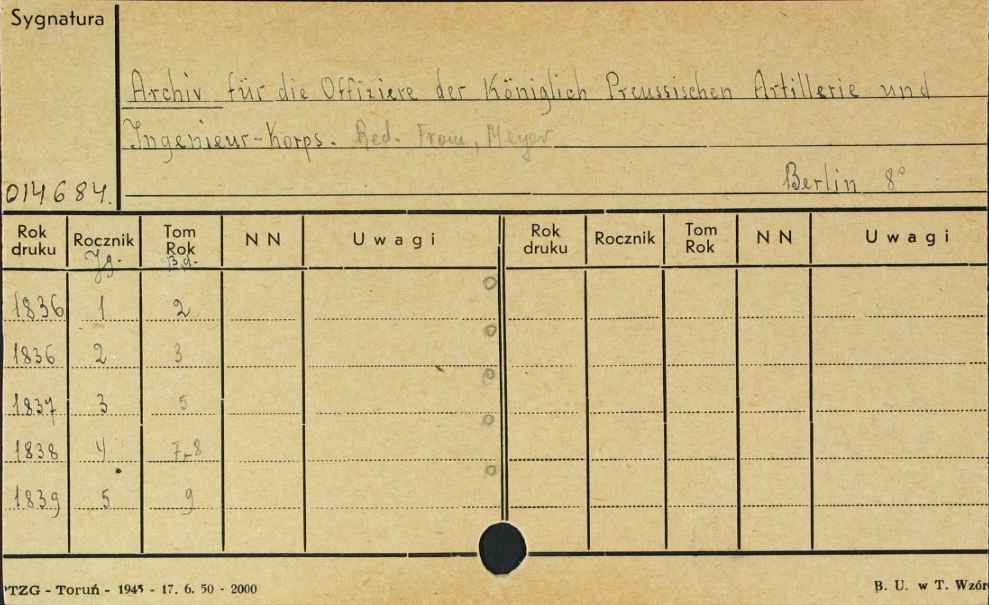 Sygnatura
Archiv für die Offiziere der Königlich Preussischen Artillerie und
Ingenieur-Korps. Red. From, Meyer
Berlin 8°
014684.
Rok druku Rocznik Tom Rok N N Uwagi Rok druku Rocznik Tom Rok N N Uwagi
Jg. Bd.
1836 1 2
1836 2 3
1837 3 5
1838 4 7-8
1839 5 9
PTZG - Toruń - 1945 - 17. 6. 50 - 2000 B. U. w T. Wzór